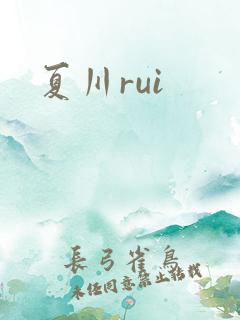 夏川rui
長弓雀鳥
未经同意禁止转载